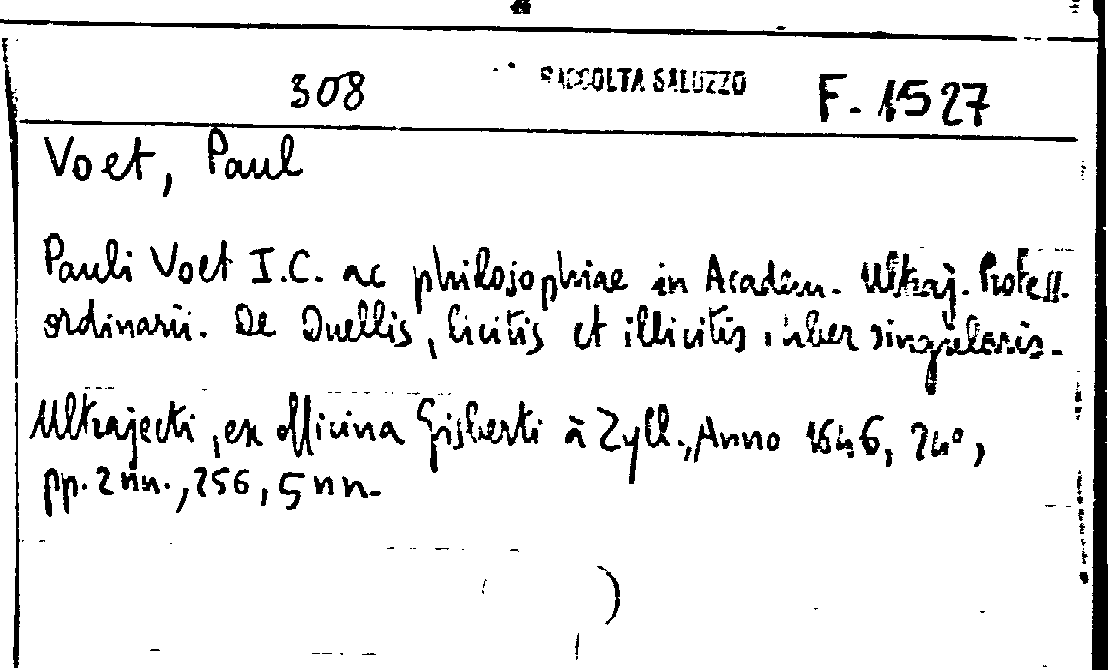 308 RACCOLTA SALUZZO F. 1527
Voet, Paul
Pauli Voet I.C. ac philosophiae in Academ. Ultraj. Profess.
ordinarii. De Duellis, licitis et illicitis, liber singularis.
Ultrajecti, ex officina Gisberti à Zyll., Anno 1646, 24°,
pp. 2 nn., 256, 5 nn.